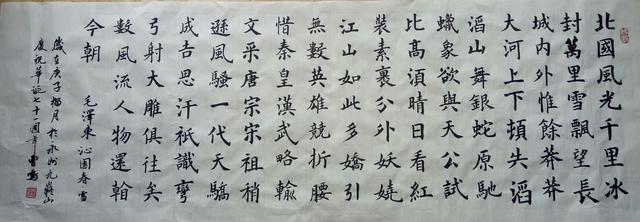 北國風光千里冰
封萬里雪飄望長
城内外惟餘莽莽
大河上下頓失滔
滔山舞銀蛇原馳
蠟象欲與天公試
比高須晴日看紅
裝素裹分外妖嬈
江山如此多嬌引
無數英雄競折腰
惜秦皇漢武略輸
文采唐宗宋祖稍
遜風騷一代天驕
成吉思汗祇識彎
弓射大雕俱往矣
數風流人物還
今朝
毛澤東沁園春 雪
歲在庚子榴月於永州九嶷山
慶祝華誕七十一週年